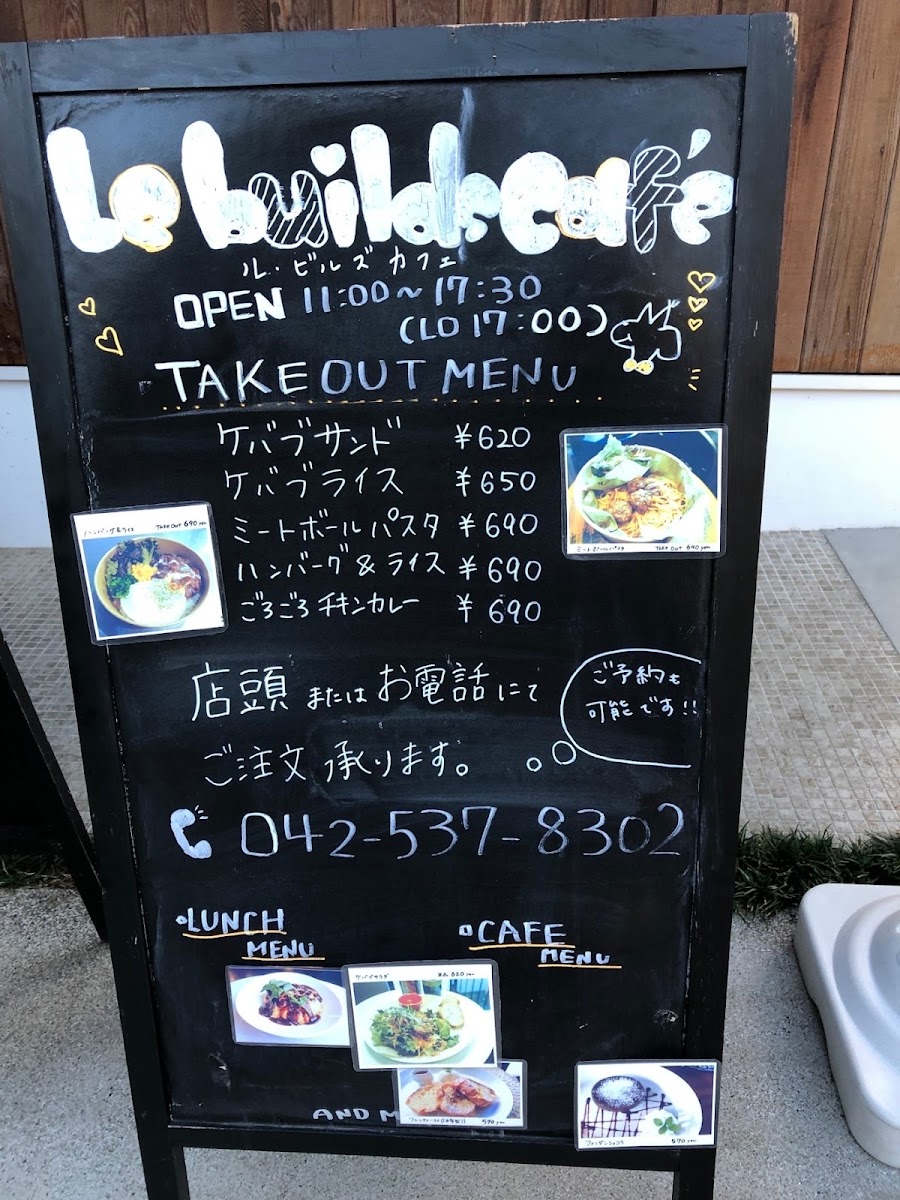 Le builds Café
ル・ビルズ カフェ
OPEN 11:00～17:30
(LO 17:00)
TAKE OUT MENU
ケバブサンド ¥620
ケバブライス ¥650
ミートボールパスタ ¥690
ハンバーグ&ライス ¥690
ごろごろチキンカレー ¥690
ハンバーグ&ライス TAKE OUT 690 yen
ミートボールパスタ TAKE OUT 690 yen
店頭 または お電話 にて
ご注文 承ります。
ご予約も
可能です!!
042-537-8302
LUNCH
MENU
CAFE
MENU
ケバブサラダ 620 yen
AND M
570 yen
フォンダンショコラ 570 yen